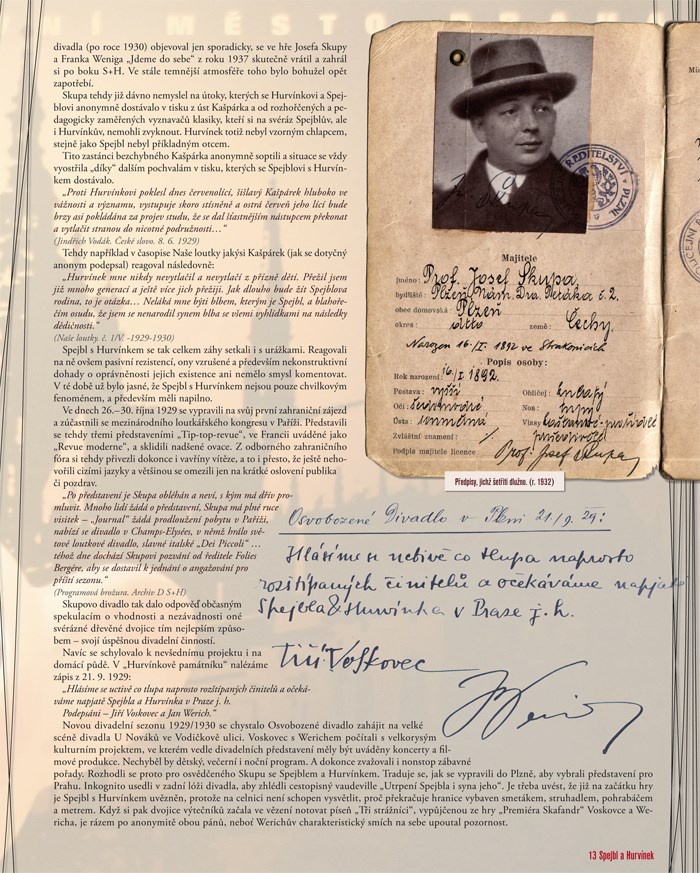 NÍ MĚSTO
divadla (po roce 1930) objevoval jen sporadicky, se ve hře Josefa Skupy
a Franka Weniga „Jdeme do sebe“ z roku 1937 skutečně vrátil a zahrál
si po boku S+H. Ve stále temnější atmosféře toho bylo bohužel opět
zapotřebí.
Skupa tehdy již dávno nemyslel na útoky, kterých se Hurvínkovi a Spej-
blovi anonymně dostávalo v tisku z úst Kašpárka a od rozhořčených a pe-
dagogicky zaměřených vyznavačů klasiky, kteří si na svéráz Spejblův, ale
i Hurvínkův, nemohli zvyknout. Hurvínek totiž nebyl vzorným chlapcem,
stejně jako Spejbl nebyl příkladným otcem.
Tito zastánci bezchybného Kašpárka anonymně soptili a situace se vždy
vyostřila „díky“ dalším pochvalám v tisku, kterých se Spejblovi s Hurvín-
kem dostávalo.
„Proti Hurvínkovi poklesl dnes červenolící, šišlavý Kašpárek hluboko ve
vážnosti a významu, vystupuje skoro stísněně a ostrá červeň jeho lící bude
brzy asi pokládána za projev studu, že se dal šťastnějším nástupcem překonat
a vytlačit stranou do nicotné podružnosti…“
(Jindřich Vodák. České slovo. 8. 6. 1929)
Tehdy například v časopise Naše loutky jakýsi Kašpárek (jak se dotyčný
anonym podepsal) reagoval následovně:
„Hurvínek mne nikdy nevytlačil a nevytlačí z přízně dětí. Přežil jsem
již mnoho generací a ještě více jich přežiji. Jak dlouho bude žít Spejblova
rodina, to je otázka… Neláká mne býti blbem, kterým je Spejbl, a blahoře-
čím osudu, že jsem se nenarodil synem blba se všemi vyhlídkami na následky
dědičnosti.“
(Naše loutky. č. 1/V. -1929-1930)
Spejbl s Hurvínkem se tak celkem záhy setkali i s urážkami. Reagovali
na ně ovšem pasivní rezistencí, ony vzrušené a především nekonstruktivní
dohady o oprávněnosti jejich existence ani nemělo smysl komentovat.
V té době už bylo jasné, že Spejbl s Hurvínkem nejsou pouze chvilkovým
fenoménem, a především měli naplnilno.
Ve dnech 26.–30. října 1929 se vypravili na svůj první zahraniční zájezd
a zúčastnili se mezinárodního loutkářského kongresu v Paříži. Představili
se tehdy třemi představeními „Tip-top-revue“, ve Francii uváděné jako
„Revue moderne“, a sklidili nadšené ovace. Z odborného zahraničního
fóra si tehdy přivezli dokonce i vavříny vítěze, a to i přesto, že ještě neho-
vořili cizími jazyky a většinou se omezili jen na krátké oslovení publika
či pozdrav.
„Po představení je Skupa obléhán a neví, s kým má dřív pro-
mluvit. Mnoho lidí žádá o představení, Skupa má plné ruce
visitek – „Journal“ žádá prodloužení pobytu v Paříži,
nabízí se divadlo v Champs-Elysées, v němž hrálo svě-
tové loutkové divadlo, slavné italské „Dei Piccoli“ …
téhož dne dochází Skupovi pozvání od ředitele Folies
Bergére, aby se dostavil k jednání o angažování pro
příští sezonu.“
(Programová brožura. Archiv D S+H)
Skupovo divadlo tak dalo odpověď občasným
spekulacím o vhodnosti a nezávadnosti oné
svérázné dřevěné dvojice tím nejlepším způso-
bem – svojí úspěšnou divadelní činností.
Navíc se schylovalo k nevšednímu projektu i na
domácí půdě. V „Hurvínkově památníku“ nalézáme
zápis z 21. 9. 1929:
„Hlásíme se uctivě co tlupa naprosto rozštípaných činitelů a očeká-
váme napjatě Spejbla a Hurvínka v Praze j. h.
Podepsáni – Jiří Voskovec a Jan Werich.“
Novou divadelní sezonu 1929/1930 se chystalo Osvobozené divadlo zahájit na velké
scéně divadla U Nováků ve Vodičkově ulici. Voskovec s Werichem počítali s velkorysým
kulturním projektem, ve kterém vedle divadelních představení měly být uváděny koncerty a fil-
mové produkce. Nechyběl by dětský, večerní i noční program. A dokonce zvažovali i nonstop zábavné
pořady. Rozhodli se proto pro osvědčeného Skupu se Spejblem a Hurvínkem. Traduje se, jak se vypravili do Plzně, aby vybrali představení pro
Prahu. Inkognito usedli v zadní lóži divadla, aby zhlédli cestopisný vaudeville „Utrpení Spejbla i syna jeho“. Je třeba uvést, že již na začátku hry
je Spejbl s Hurvínkem uvězněn, protože na celnici není schopen vysvětlit, proč překračuje hranice vybaven smetákem, struhadlem, pohrabáčem
a metrem. Když si pak dvojice výtečníků začala ve vězení notovat píseň „Tři strážníci“, vypůjčenou ze hry „Premiéra Skafandr“ Voskovce a We-
richa, je rázem po anonymitě obou pánů, neboť Werichův charakteristický smích na sebe upoutal pozornost.
ŘEDITELSTVÍ PLZNI
Majitele
jméno: Prof. Josef Skupa
bydliště: Plzeň, Nám. Dra. Petáka č. 2.
obec domovská: Plzeň
okres: ditto země: Čechy.
Narozen 16./I. 1892 ve Strakonicích
Popis osoby:
Rok narození: 16./I 1892.
Postava: vyšší Obličej: kulatý
Oči: Nos: tupý
Ústa: souměrná Vlasy
Zvláštní znamení: /.
Podpis majitele licence. Prof. Josef Skupa
Předpisy, jichž šetřiti dlužno. (r. 1932)
Osvobozené Divadlo v Plzni 21/9. 29:
Hlásíme se uctivě co tlupa naprosto
rozštípaných činitelů a očekáváme napjatě
Spejbla & Hurvínka v Praze j. h.
Jiří Voskovec
JWerich
13 Spejbl a Hurvínek